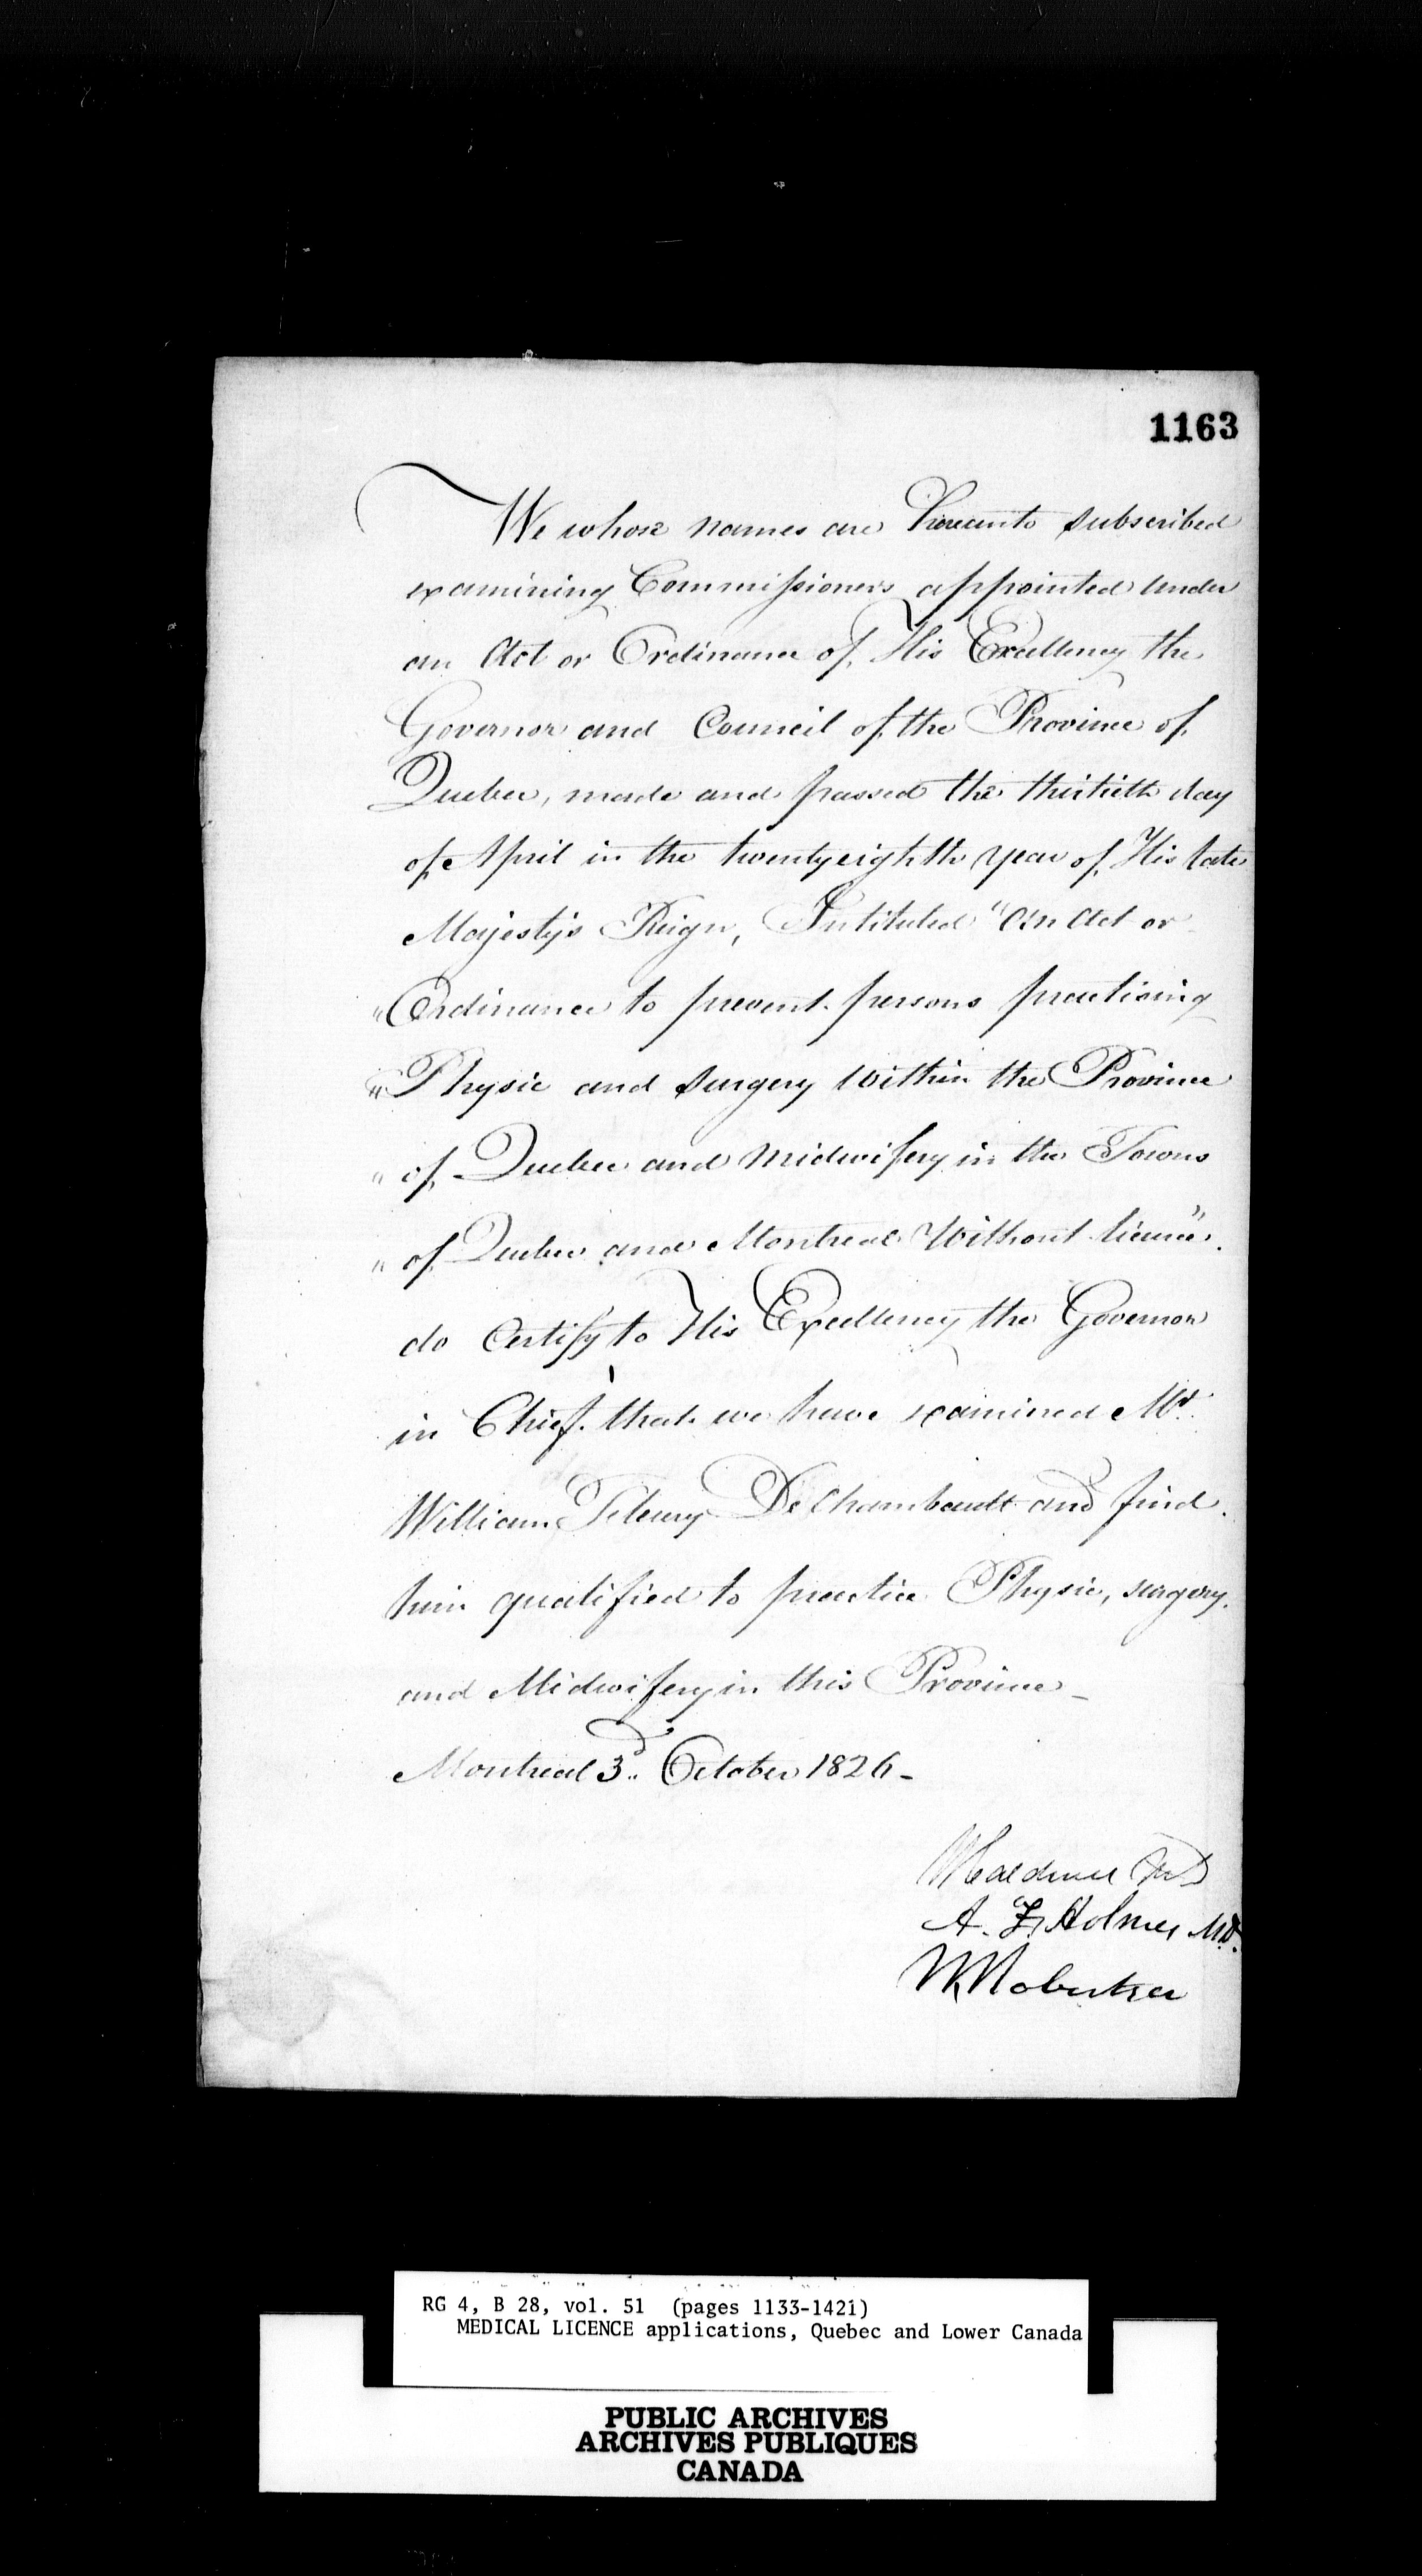 1163
We whose names are hereunto subscribed
examining Commissioners appointed under
an Act or Ordinance of His Excellency the
Governor and Council of the Province of
Quebec, made and passed the thirtieth day
of April in the twenty eighth year of His late
Majesty's Reign, Intituled "An Act or
"Ordinance to prevent persons practising
"Physic and Surgery within the Province
" of Quebec and Midwifery in the Towns
" of Quebec and Montreal Without licence".
do Certify to His Excellency the Governor
in Chief that we have examined Mr.
William Fleury De Chambault and find
him qualified to practice Physic, surgery.
and Midwifery in this Province -
Montreal 3d. October 1826 -
A. F. Holmes M.D.
W Robertson
RG 4, B 28, vol. 51 (pages 1133-1421)
MEDICAL LICENCE applications, Quebec and Lower Canada
PUBLIC ARCHIVES
ARCHIVES PUBLIQUES
CANADA